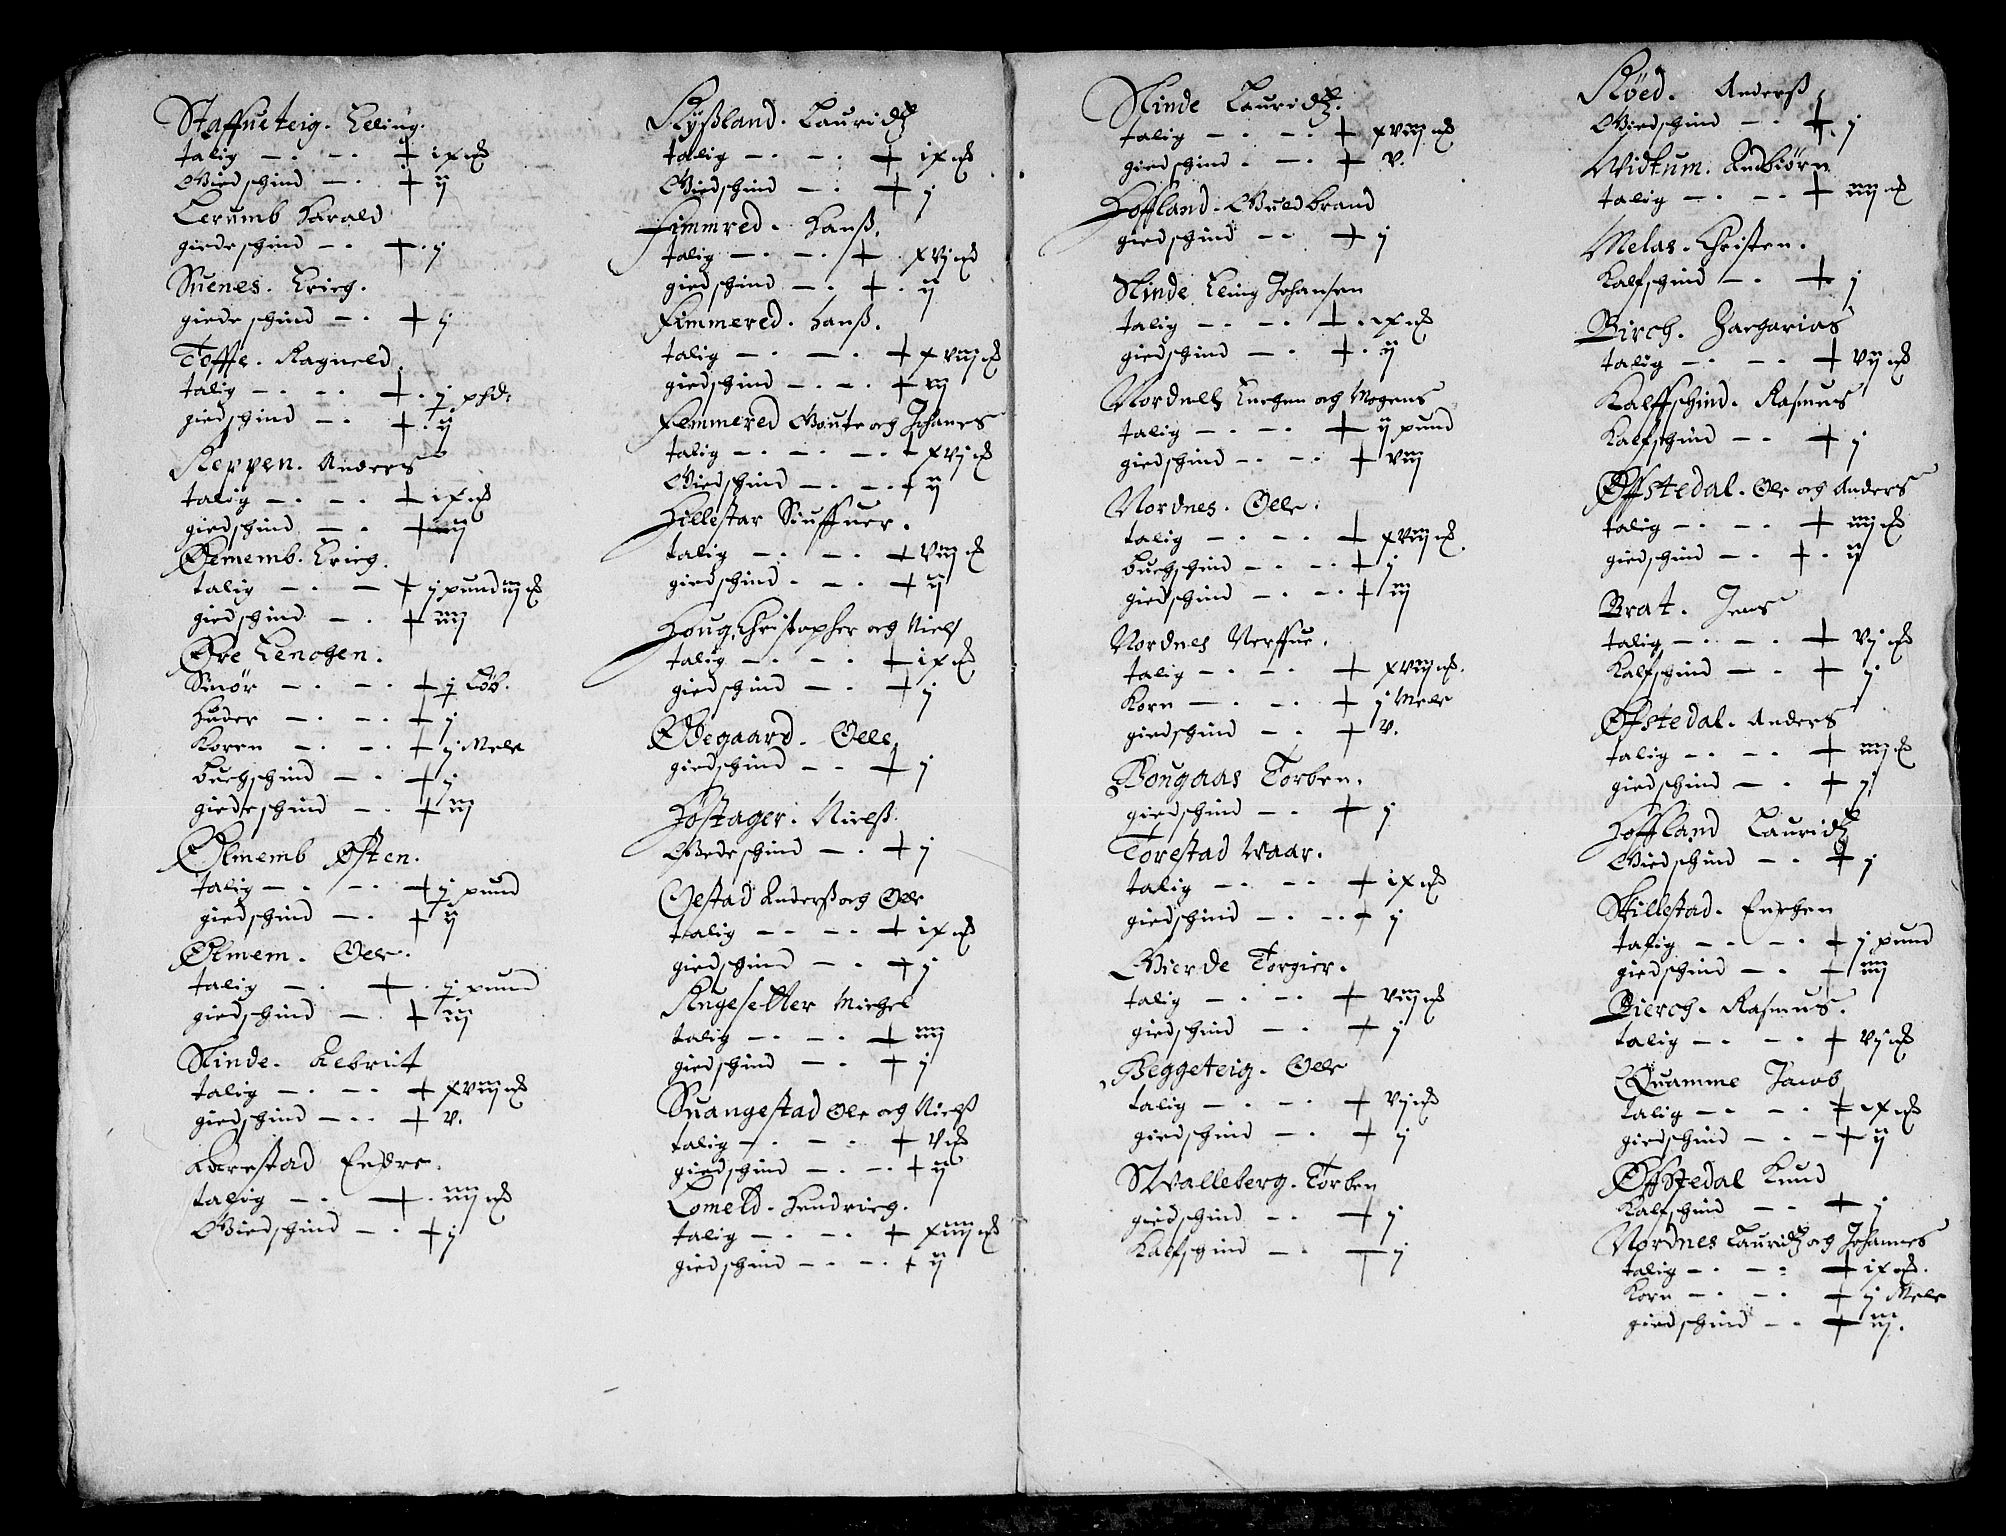 Staffueteig. Elling.
talig — . — . + ix mk
Giedschind — . + ij
Lerumb Harald
giedeschind — . + . ij
Suenes. Erieg.
giedeschind — . + ij
Toffte. Ragneld.
talig — . — . + . j phd:
giedschind — . + . ij
Reppen. Anders
talig — . — . + ix mk
giedschind — . + iij
Ølmemb. Erieg.
talig — . — + j pund iij mk
giedschind — . + iiij
Øre Lenogen.
Smør — . — . + j Løb.
Huder — . — . + j
Koren — . — . + j Mele
Buchschind — . + j
giedeschind — . + iij
Ølmemb Østen.
talig — . — . + j pund
giedschind — . + ij
Ølmem. Oele.
talig — . + . j pund
giedschind — . + iij
Slinde. Aebrit
talig — . — . + xviij mk
giedschind — . . + v.
Aarestad Endre.
talig — . + . iiij mk
Giedschind — . + j
Ryßland. Lauridtz
talig — . — . + ix mk
Giedschind — . + j
Fimmred. Hanß.
talig — . — . + . xvj mk
giedschind — . + . ij
Fimmered. Hanß.
talig — . — . + xviij mk
giedschind — . — . + iij
Femmered Goute och Johanes
talig — . — . — + xvj mk
Giedschind — . — . + ij
Hillestar Siuffuer.
talig — . — . + viij mk
giedschind . — . + ij
Houg. Christopher och Niels
talig — . — . + ix mk
giedschind — . + j
Ødegaard. Oele
giedschind — . + j
Hostager. Nielß
Gedeschind — . + j
Oestad Anderß och Oele
talig — . — . + ix mk
giedschind — . + j
Angesetter Michel
talig — . — . + iiij
giedschind — . + j
Suangestad Ole och Nielß
talig — . — . + v mk
giedschind — . — . + ij
Lomeld. Hendrieg.
talig — . — . + xiiij mk
giedschind — . — . + ij
Slinde Lauridtz.
talig — . — . + xviij mk
giedschind . — . + v.
Hoffland. Guldbrand
giedschind — . + j
Slinde Eling Johansen
talig — . — . + . ix mk
giedschind — . + . ij
Nordnes Erichen och Mogens
talig — . — . + ij pund
giedschind — . — . + viij
Nordnes. Oele.
talig — . — . + xviij mk
Buchschind — . — . + j
giedschind — . — . + iij
Nordnes Verffue.
talig — . — . + xviij mk.
Korn — . — . + j Mele
giedschind — . + v.
Bougaas Torben.
giedschind — . + j
Torestad Waar.
talig — . — . + ix mk
giedschind — . — . + j
Gierde Torgier.
talig — . — . + viij mk
giedschind — . + j
Beggeteig. Oele
talig — . — . + vj mk
giedschind — . + ij
Sualleberg. Torben
giedschind — . + j
Kalfschind — . + j
Røed. Anderß
Giedschind — . + j
Widtum. Andbiørn
talig — . — . + iiij mk
Melas. Christen.
Kalfschind — . + j
Birch. Zacharias
talig — . — . + vij mk
Kalffschind. Rasmus
Kalfschind — . + j
Øffstedal. Ole och Anders
talig — . — . + iiij mk
giedschind — . + . ij
Brat. Jens
talig — . — . + vj mk
Kalfschind — . + j
Øfstedal. Anders
talig — . — . + iiij mk
giedschind — . + j
Hoffland Lauridtz
Giedschind — . + j
Skillestad. Erichen
talig — . — . + j pund
giedschind — . + iiij
Bierch. Rasmus.
talig — . — . + vj mk
Quamme Jacob
talig — . — . + ix mk
giedschind — . — + ij
Øffstedal Knud
Kalfschind — . + j
Nordnes Lauridtz och Johannes
talig — . — . + ix mk.
Korn — . — . + j Mele
giedschind — . + iij.